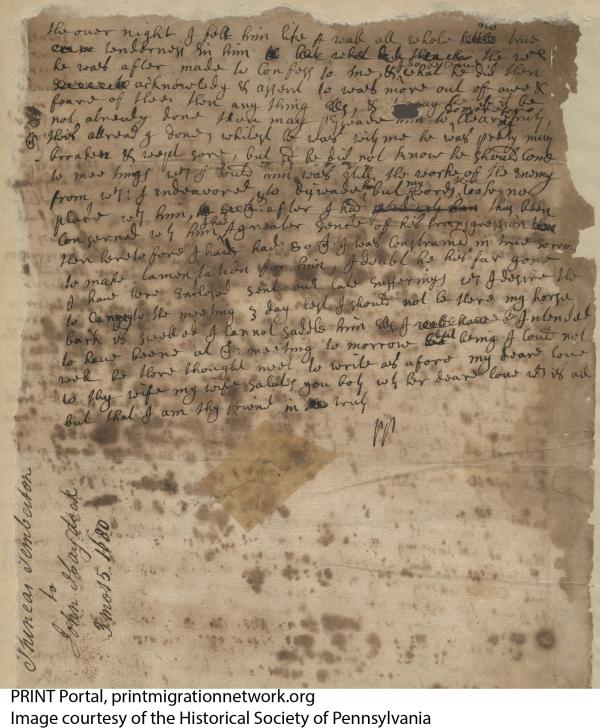 the over night I felt him life & was all whole true
tenderness in him
he was after made to confess to me, & what he did then
acknowledg & assent to was more out of awe &
feare of thee then any thing els, &
not already done thou may
this already done, whilest he was with me he was prety much
broaken & wept sore, but sd he did not know he should come
to meetings wch I tould him was still the worke of the Enemy
from wch I Endeavored to diswade but my words tooke no
place wth him, after I had thus been
Conserned wth him A greater sence of his transgression
then heretofore I have had, so I was Constraind in true sorrow
to make lamentation for him, I doubt he hus far gone
I have here Enclosed sent our late sufferings wch I desire thee
to Carry to the meeting 3 day lest I should not be there my horse
back is sweled I cannot saddle him els I Intended
to have beene at meeting to morrow but being I could not
well be there thought meet to write as afore my deare love
to thy wife my wife salutes you both wth her deare love wch is all
but that I am thy friend in truth
pp
Phineas Pemberton
to
John Haydock
3mo 15. 1680
PRINT Portal, printmigrationnetwork.org
Image courtesy of the Historical Society of Pennsylvania